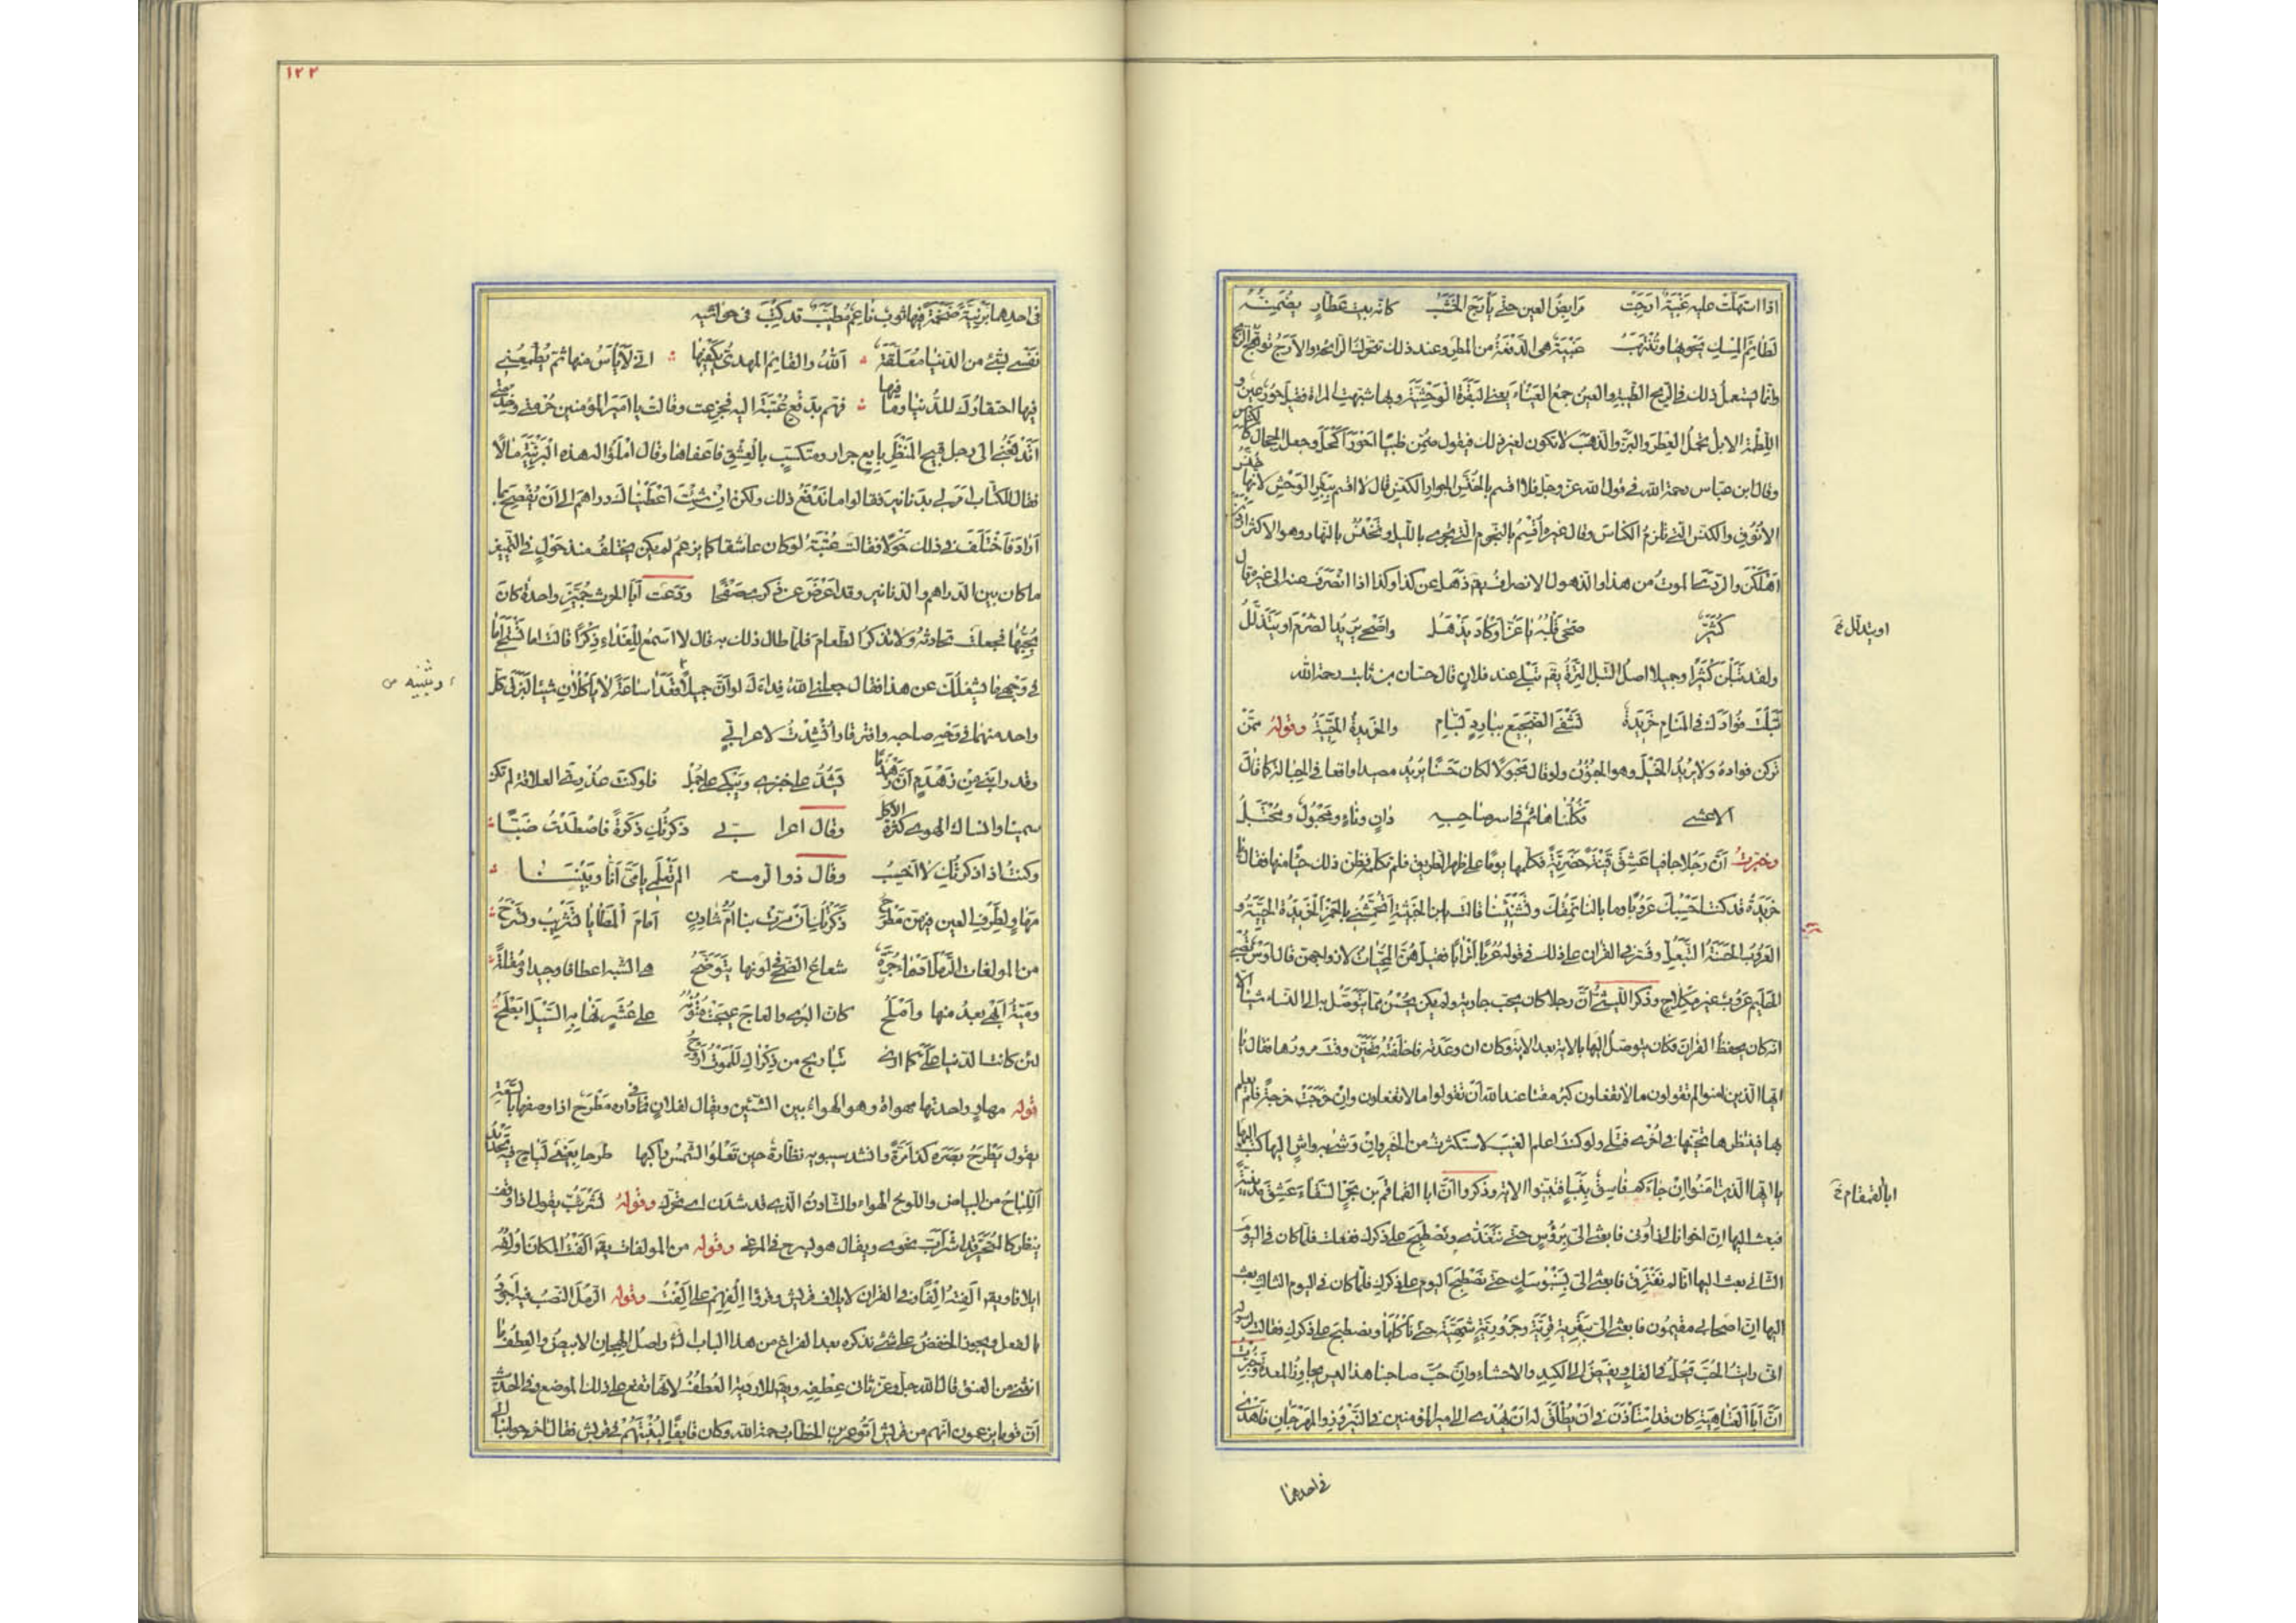 اذا استهلت عليه غبية ارجت مرابض العين حتى يأرج الخشب كانه بيت عطار يضمنه
لطائم المسك يحويها وتنتهب غبية هى الدفعة من المطر وعند ذلك تتحرك الرائحة والارج توهج الريح
وانما يستعمل ذلك فى الريح الطيبة والعين جمع العيناء يعنى البقرة الوحشية وبها شبهت المراة فقيل حور عين و
اللطيمة الابل تحمل العطر والبز والذهب لا تكون لغير ذلك فيقول ضمن ظبيا احور اكحل وجعل الحجال كالكناس
وقال ابن عباس رحمة الله فى قول الله عز وجل فلا اقسم بالخنس الجوار الكنس قال لا اقسم ببقر الوحش لانها خنس
الانوف والكنس التى تلزم الكناس وقال غيره اقسم بالنجوم التى تجرى بالليل وتخنس بالنهار وهو الاكثر
اهلكن والردى الموت من هذا والذهول الانصراف يقال ذهل عن كذا وكذا اذا انصرف عنه الى غيره قال
كثير صحى قلبه يا عز او كاد يذهل واضحى يريد الصرم او يتدلل
ولقد تبلن كثيرا وجميلا اصل التبل الترة يقال تبلى عند فلان قال حسان بن ثابت رحمة الله
تبلت فؤادك فى المنام خريدة تشفى الضجيع ببارد بسام والخريدة الحيية وقوله ممن
تركن فواده ولا يريد الخبل وهو الجنون ولو قال مخبولا لكان حسنا يريد مصيدا واقعا فى الحبالة كما قال
الاعشى فكلنا هائم فى اسر صاحبه دان وناء ومحبول ومحتبل
وخبرت ان رجلا جافيا عشق قينة حضرية فكلمها يوما على ظهر الطريق فلم تكلمه فظن ذلك حياء منها فقال يا
خريدة قد كنت احسبك عروبا وما بالنا نمقك وتشنئينا قالت يا ابن الخبيثة اتجمشنى بالهمز الخريدة الحيية و
العروب الحسنة التبعل وفسر فى القران على ذلك فى قوله عربا اترابا فقيل هن المحبات لازواجهن قال اوس تصبى
الحليم عروب غير مكلاح وذكر الليثى ان رجلا كان يحب جارية ولم يكن يحسن مما يتوصل به الى النساء شيئا الا
انه كان يحفظ القران فكان يتوصل اليها بالاية بعد الاية وكان ان وعدته فاخلفته تحين وقت مرورها فقال يا
ايها الذين امنوا لم تقولون ما لا تفعلون كبر مقتا عند الله ان تقولوا ما لا تفعلون وان خرجت خرجة فلم يعلم
بها فينتظرها تحينها فى اخرى فتلى ولو كنت اعلم الغيب لاستكثرت من الخير وان وشى به واش اليها كتب اليها
يا ايها الذين امنوا ان جاءكم فاسق بنبا فتبينوا الاية وذكروا ان ابا القماقم بن بحر السقاء عشق مدينية
فبعث اليها ان اخوانا لى زارونى فابعثى الى برؤس حتى نتغدى ونصطبح على ذكرك ففعلت فلما كان فى اليوم
الثانى بعث اليها انا لم نفترق فابعثى الى بسنبوسك حتى نصطبح اليوم على ذكرك فلما كان فى اليوم الثالث بعث
اليها ان اصحابى مقيمون فابعثى الى بقلية جزورية شهية حتى ناكلها ونصطبح على ذكرك فقالت لرسوله
انى رايت الحب يحل فى القلب ويفيض الى الكبد والاحشاء وان حب صاحبنا هذا ليس يجاوز المعدة وخبرت
ان ابا العتاهية كان قد استاذن فى ان يطلق له ان يهدى الى امير المؤمنين فى النيروز والمهرجان فاهدى
او يتدلل خ
ابا القمقام خ
فى احدهما
١٢٢
فى احدهما برنية ضخمة فيها ثوب ناعم مطيب قد كتب فى حواشيه
نفسى بشئ من الدنيا معلقة الله والقايم المهدى يكفيها انى لاياس منها ثم يطمعنى
فيها احتقارك للدنيا وما فيها فهم بدفع عتبة اليه فجزعت وقالت يا امير المؤمنين حرمتى وخدمتى
اتدفعنى الى رجل قبيح المنظر بايع جرار ومتكسب بالعشق فاعفاها وقال املؤا له هذه البرنية مالا
فقال للكتاب امر لى بدنانير فقالوا ما ندفع ذلك ولكن ان شئت اعطينا لك دراهم الى ان يفصح بما
اراد فاختلف فى ذلك حولا فقالت عتبة لو كان عاشقا كما يزعم لم يكن يختلف منذ حول فى التمييز
ما كان بين الدراهم والدنانير وقد اعرض عن ذكرى صفحا ودعت ابا الحرث جمين واحدة كان
يحبها فجعلت تحادثه ولا تذكر الطعام فلما طال ذلك به قال لا اسمع للغداء ذكرا قالت اما تستحى اما
فى وجهى ما يشغلك عن هذا فقال جعلنى الله فداءك لو ان جميلا وبثينة قعدا ساعة لا ياكلان شيئا لبزق كل
واحد منهما فى وجه صاحبه وافترقا وانشدت لاعرابى
وقد رابنى من زهدم ان زهدما يشد على خبزى ويبكى على جمل فلو كنت عذرى العلاقة لم تكن
سمينا وانساك الهوى كثرة الاكل وقال اعرابى ذكرتك ذكرة فاصطدت ضبا
وكنت اذا ذكرتك لا اخيب وقال ذو الرمة الم تعلمى يا مى انا وبيننا
مهاو لطرف العين فيهن مطرح ذكرتك ان مرت بنا ام شادن امام المطايا تشرئب وتسنح
من المولفات الرمل ادماء حرة شعاع الضحى فى لونها يتوضح هى الشبه اعطافا وجيدا ومقلة
ومية ابهى بعد منها واملح كان البرى والعاج عيجت متونه على عشر نهى به السيل ابطح
لئن كانت الدنيا على كما ارى تباريح من ذكراك للموت اروح
قوله مهاو واحدتها مهواة وهو الهواء بين الشيئين ويقال لفلان فى داره مطرح اذا وصفها بالسعة
يقول يطرح بصره كذا مرة وانشد سيبويه نظارة حين تعلو الشمس راكبها طرحا بعينى لياح فيه تحديد
اللياح من البياض واللوح الهواء والشادن الذى قد شدن اى تحرك وقوله تشرئب يقول اذا وقف
ينظر كالمتحير قد اشراب نحوى ويقال هو يسرح فى المرعى وقوله من المولفات يقال آلفت المكان اولفه
ايلافا ويقال الفته الفا وفى القران لايلاف قريش وقرؤا الفهم على الفت وقوله الرمل النصب فيه اجود
بالفعل ويجوز الخفض على شئ نذكره بعد الفراغ من هذا الباب ان شاء الله واصل الهجان الابيض والعطف ما
انثنى من العنق قال الله جل وعز ثانى عطفه ويقال للاردية العطف لانها تقع على ذلك الموضع وفى الحديث
ان قوما يزعمون انهم من قريش اتوا عمر بن الخطاب رحمة الله وكان قايفا ليثبتهم فى قريش فقال اخرجوا بنا الى
وبثينة ص